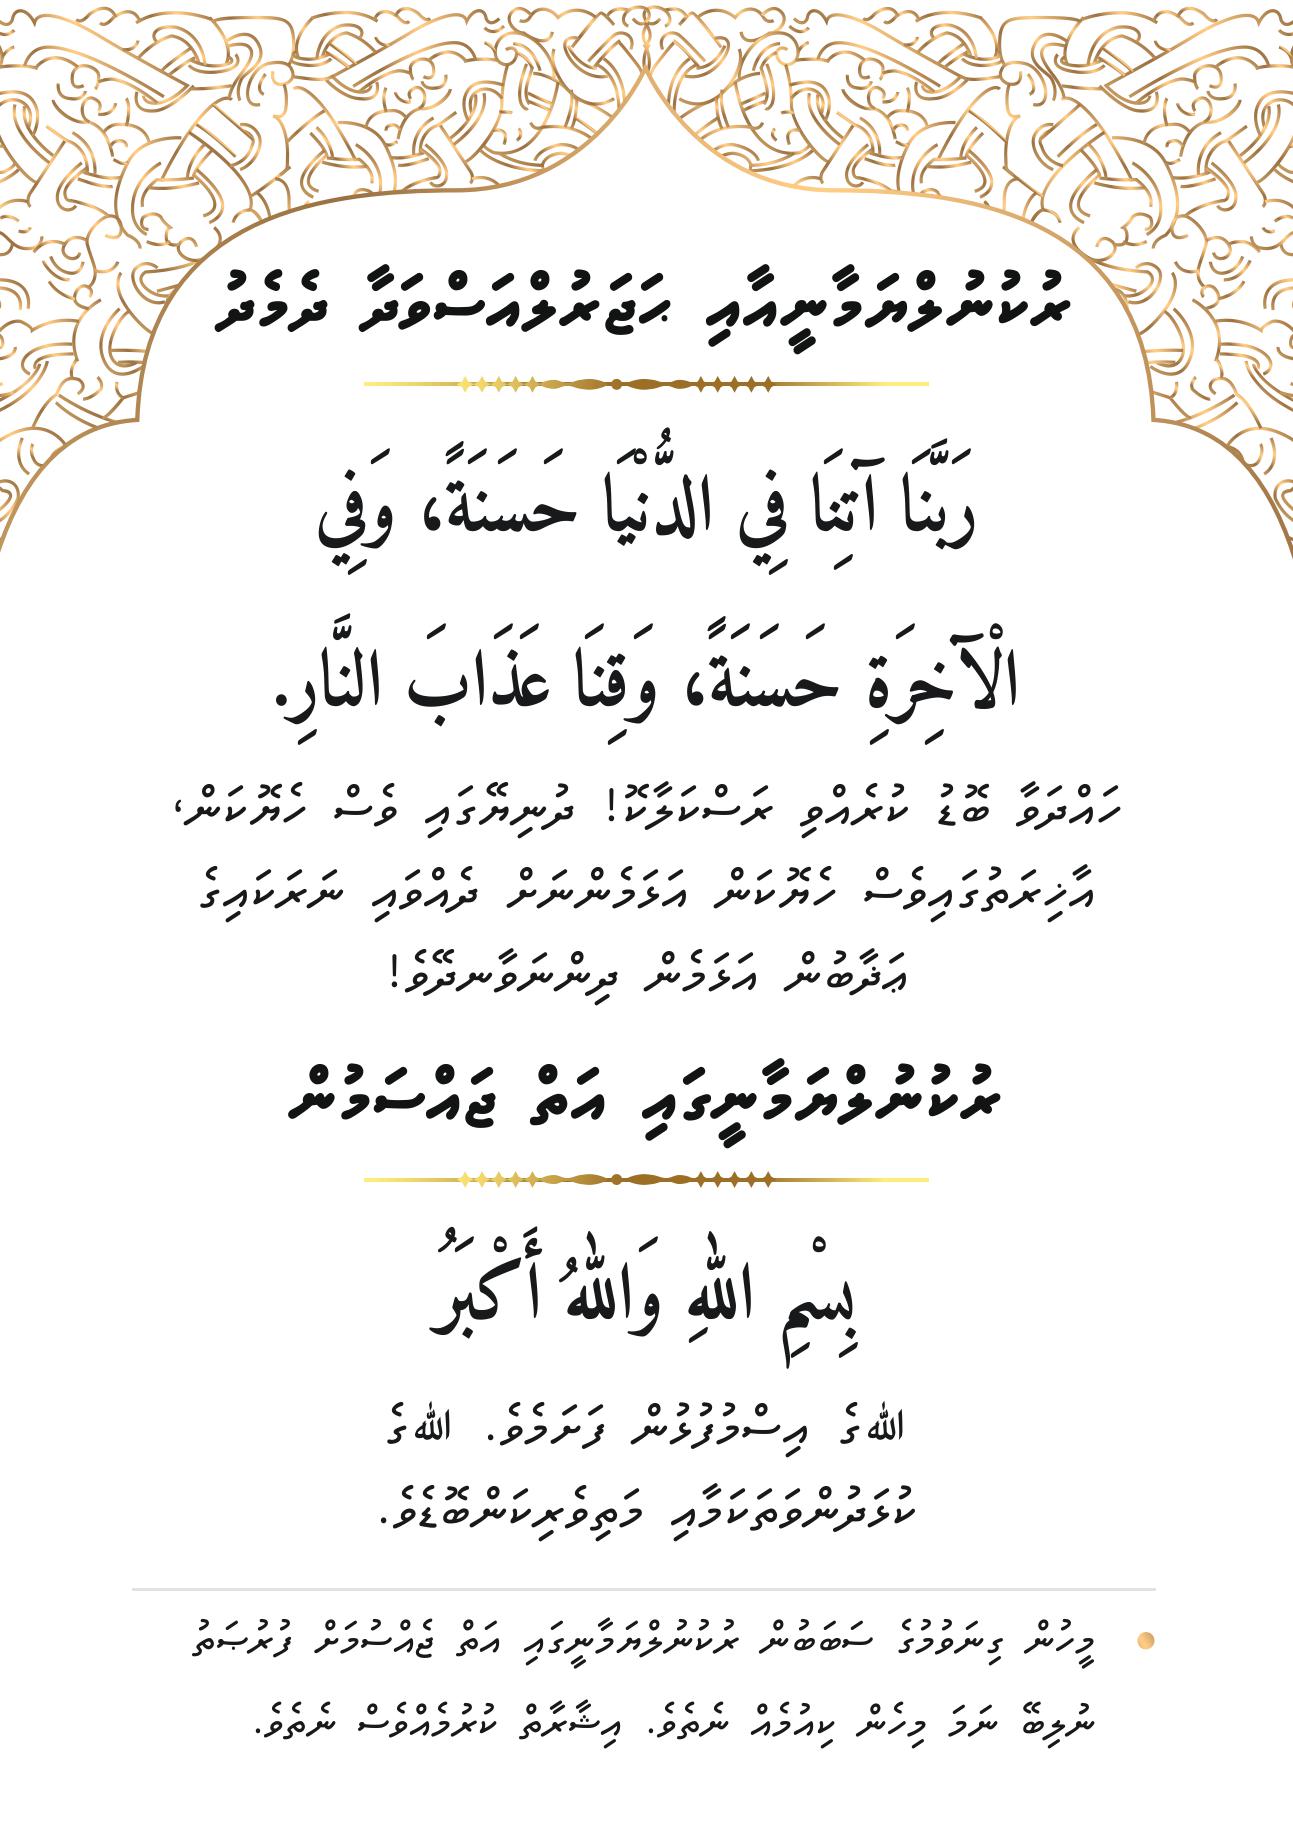 ރުކުނުލްޔަމާނީއާއި ޙަޖަރުލްއަސްވަދާ ދެމެދު
رَبَّنَا آتِنَا فِي الدُّنْيَا حَسَنَةً، وَفِي
الْآخِرَةِ حَسَنَةً، وَقِنَا عَذَابَ النَّارِ.
ހައްދަވާ ބޮޑު ކުރެއްވި ރަސްކަލާކޮ! ދުނިޔޭގައި ވެސް ހެޔޮކަން،
އާޚިރަތުގައިވެސް ހެޔޮކަން އަޅަމެންނަށް ދެއްވައި ނަރަކައިގެ
ޢަޛާބުން އަޅަމެން ދިންނަވާނދޭވެ!
ރުކުނުލްޔަމާނީގައި އަތް ޖައްސަމުން
بِسْمِ اللهِ وَاللهُ أَكْبَرُ
اللهގެ އިސްމުފުޅުން ފަށަމެވެ. اللهގެ
ކުޅަދުންވަތަކަމާއި މަތިވެރިކަންބޮޑެވެ.
މީހުން ގިނަވުމުގެ ސަބަބުން ރުކުނުލްޔަމާނީގައި އަތް ޖެއްސުމަށް ފުރުޞަތު
ނުލިބޭ ނަމަ މިހެން ކިއުމެއް ނެތެވެ. އިޝާރާތް ކުރުމެއްވެސް ނެތެވެ.